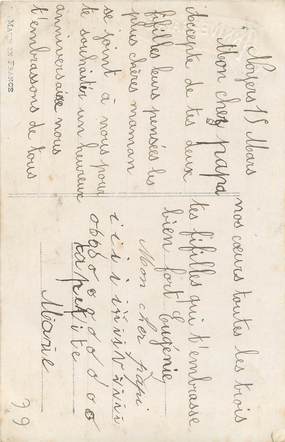 MADE IN FRANCE
Noyers 15 Mars
Mon cher papa
Accepte de tes deux
fifilles leurs pensées les
plus chères maman
se joint à nous pour
te souhaiter un heureux
anniversaire nous
t'embrassons de tous
nos cœurs toutes les trois
tes fifilles qui t'embrasse
bien fort Eugénie
Mon cher papi
i i i i i i i i i i i
o o o o o o o o
ta petite
Marie